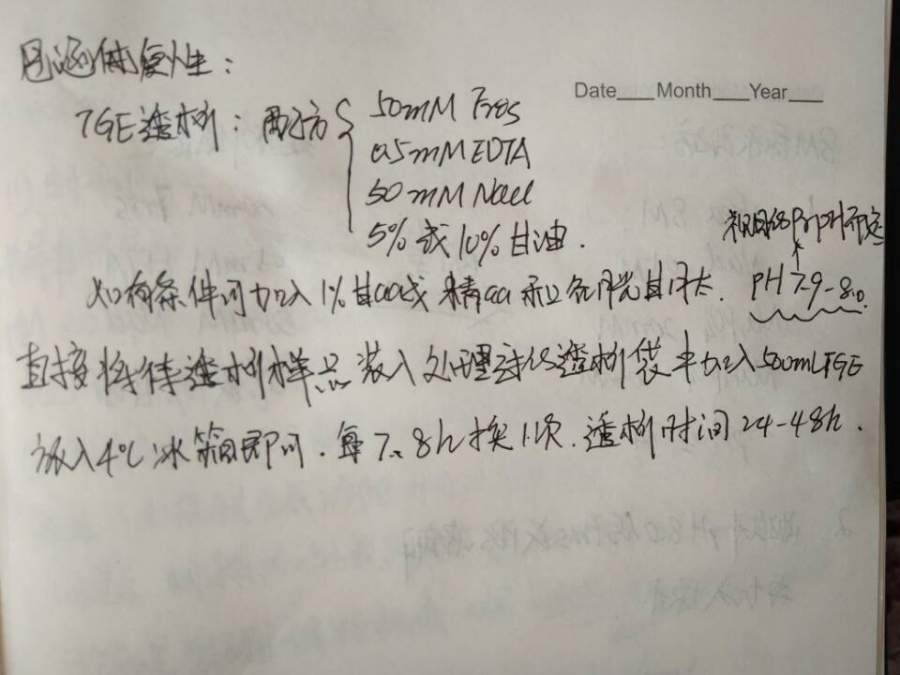 包涵体复性:
Date___Month___Year___
TGE透析: 配方 { 50mM Tris
0.5mM EDTA
50mM NaCl
5%或10%甘油.
视目的Pr pI而定
如有条件可加入1%甘aa或精aa和氧化谷胱甘肽. PH 7.9-8.0.
直接将待透析样品装入处理过的透析袋中加入500mL TGE
放入4℃冰箱即可. 每7、8h换1次. 透析时间24-48h.